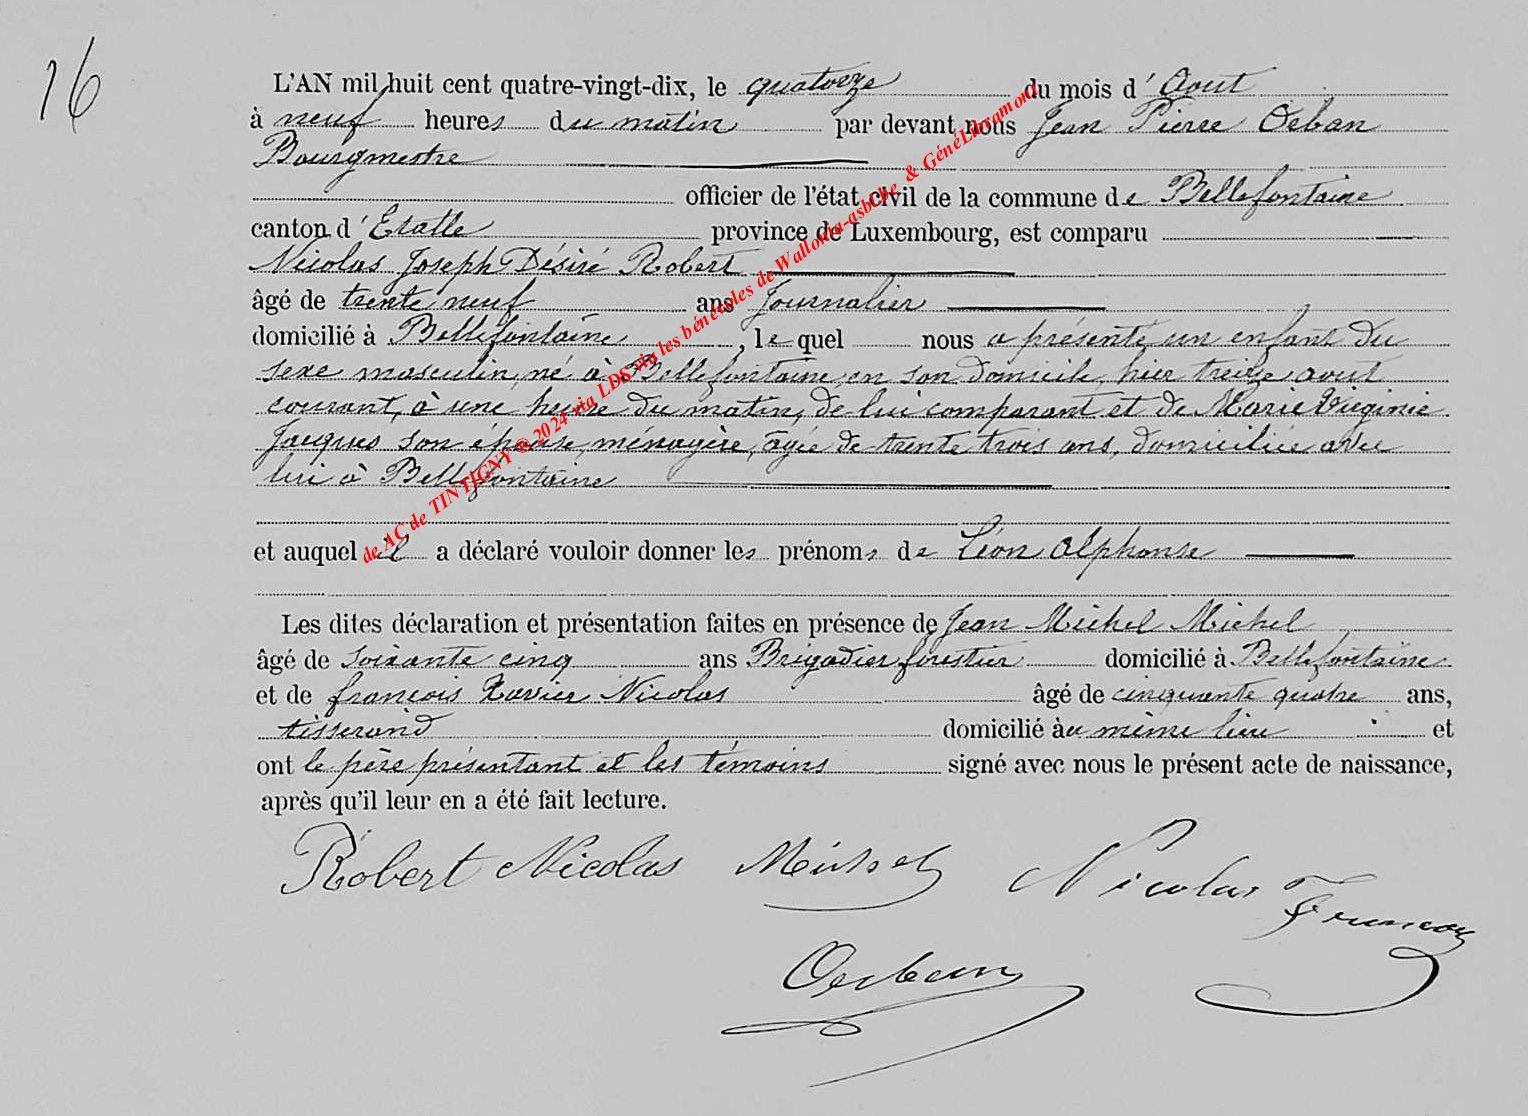 16
L'AN mil huit cent quatre-vingt-dix, le quatorze du mois d'Aout
à neuf heures du matin par devant nous Jean Pierre Orban
Bourgmestre
officier de l'état civil de la commune de Bellefontaine
canton d'Etalle province de Luxembourg, est comparu
Nicolas Joseph Désiré Robert
âgé de trente neuf ans Journalier
domicilié à Bellefontaine, lequel nous a présenté un enfant du
sexe masculin, né à Bellefontaine, en son domicile, hier treize aout
courant, à une heure du matin, de lui comparant et de Marie Virginie
Jacques son épouse, ménagère, agée de trente trois ans, domiciliée avec
lui à Bellefontaine
et auquel il a déclaré vouloir donner les prénoms de Léon Alphonse
Les dites déclaration et présentation faites en présence de Jean Michel Michel
âgé de soixante cinq ans Brigadier forestier domicilié à Bellefontaine
et de françois Xavier Nicolas âgé de cinquante quatre ans,
tisserand domicilié au même lieu et
ont le père présentant et les témoins signé avec nous le présent acte de naissance,
après qu'il leur en a été fait lecture.
Robert Nicolas Michel Nicolas François
Orban
de AC de TINTIGNY ® 2024 via LDS via les bénévoles de Wallonia-asbl.be & GénéLibramont